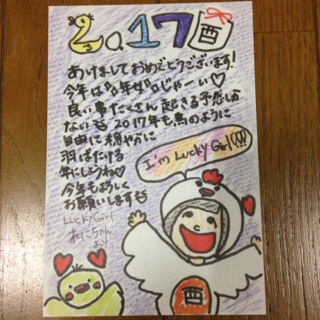 2.017酉
あけましておめでとうございます!
今年は"年女"じゃーい♡
良い事たくさん起きる予感しか
ない 2017年も鳥のように
自由に穏やかに
羽ばたける
年にしようね♡
今年もよろしく
お願いします
Lucky Girl
れにちゃん
I'm Lucky Girl!!!
酉